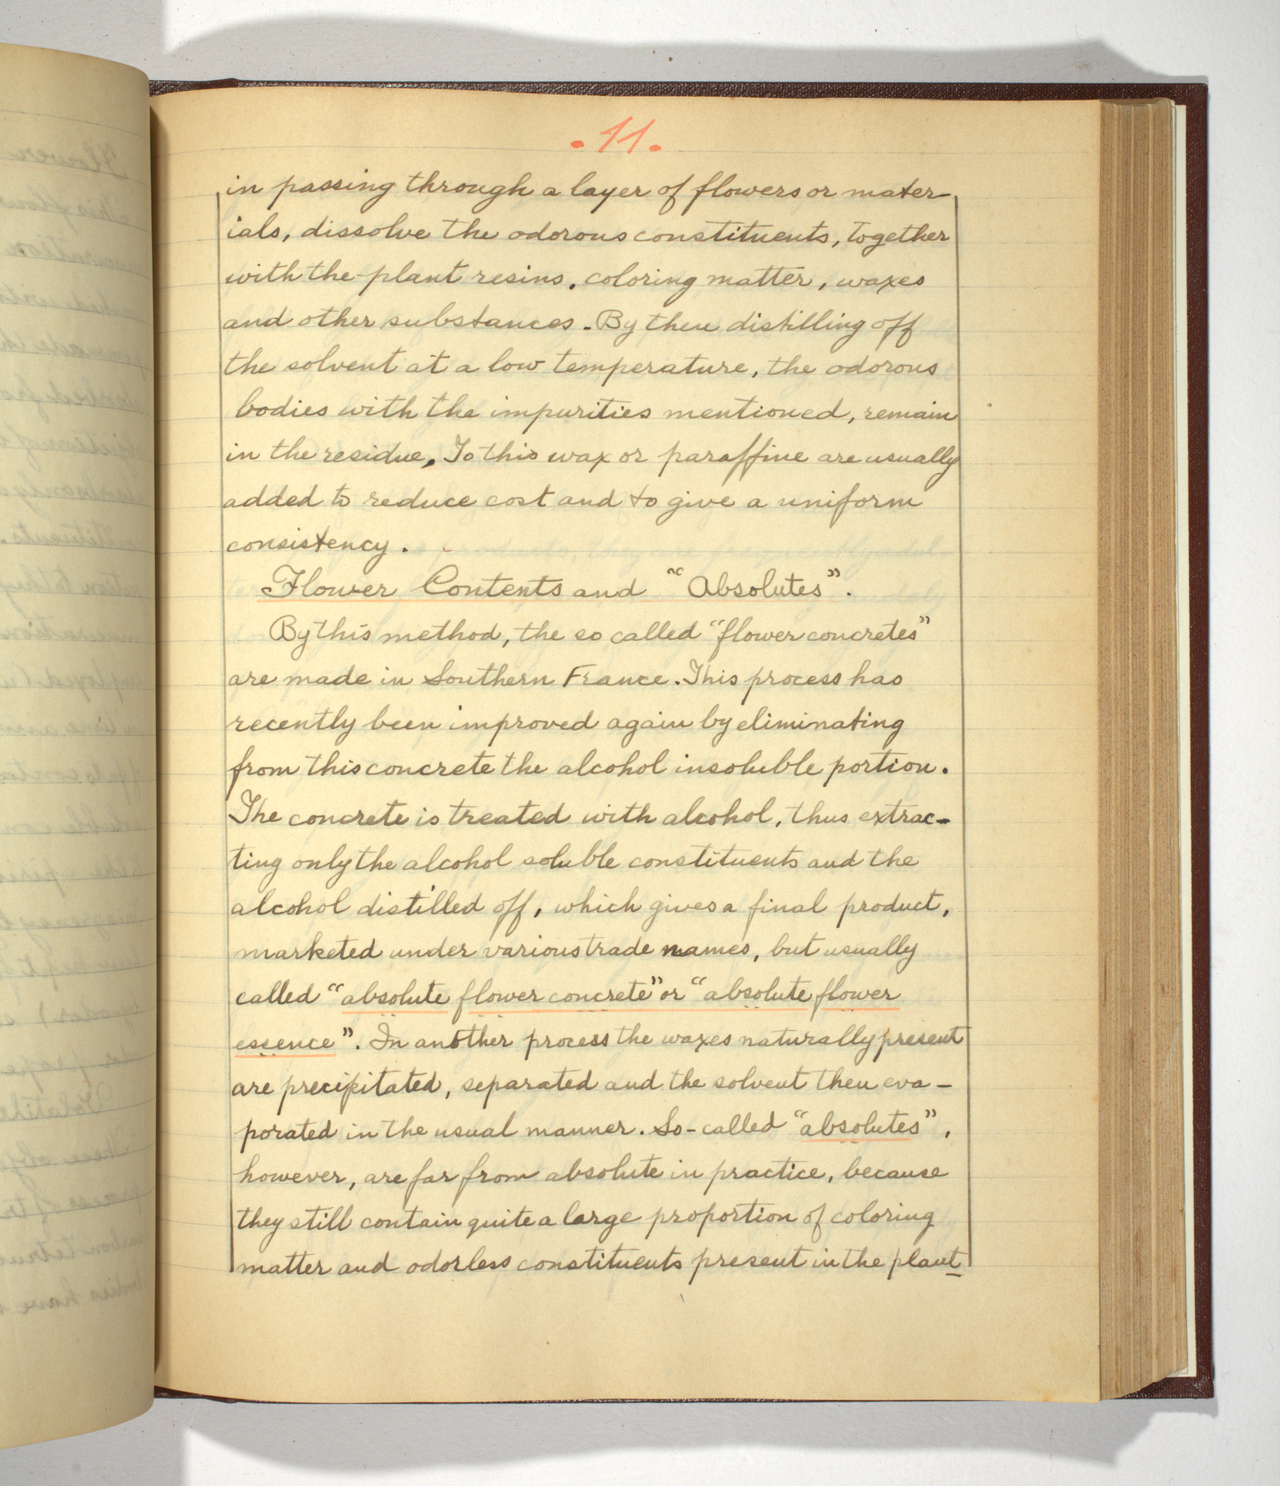 . 11.
in passing through a layer of flowers or mater-
ials, dissolve the odorous constituents, together
with the plant resins, coloring matter, waxes
and other substances. By then distilling off
the solvent at a low temperature, the odorous
bodies with the impurities mentioned, remain
in the residue. To this wax or paraffine are usually
added to reduce cost and to give a uniform
consistency.
Flower Contents and "Absolutes".
By this method, the so called "flower concretes"
are made in Southern France. This process has
recently been improved again by eliminating
from this concrete the alcohol insoluble portion.
The concrete is treated with alcohol, thus extrac-
ting only the alcohol soluble constituents and the
alcohol distilled off, which gives a final product,
marketed under various trade names, but usually
called "absolute flower concrete" or "absolute flower
essence". In another process the waxes naturally present
are precipitated, separated and the solvent then eva-
porated in the usual manner. So-called "absolutes",
however, are far from absolute in practice, because
they still contain quite a large proportion of coloring
matter and odorless constituents present in the plant